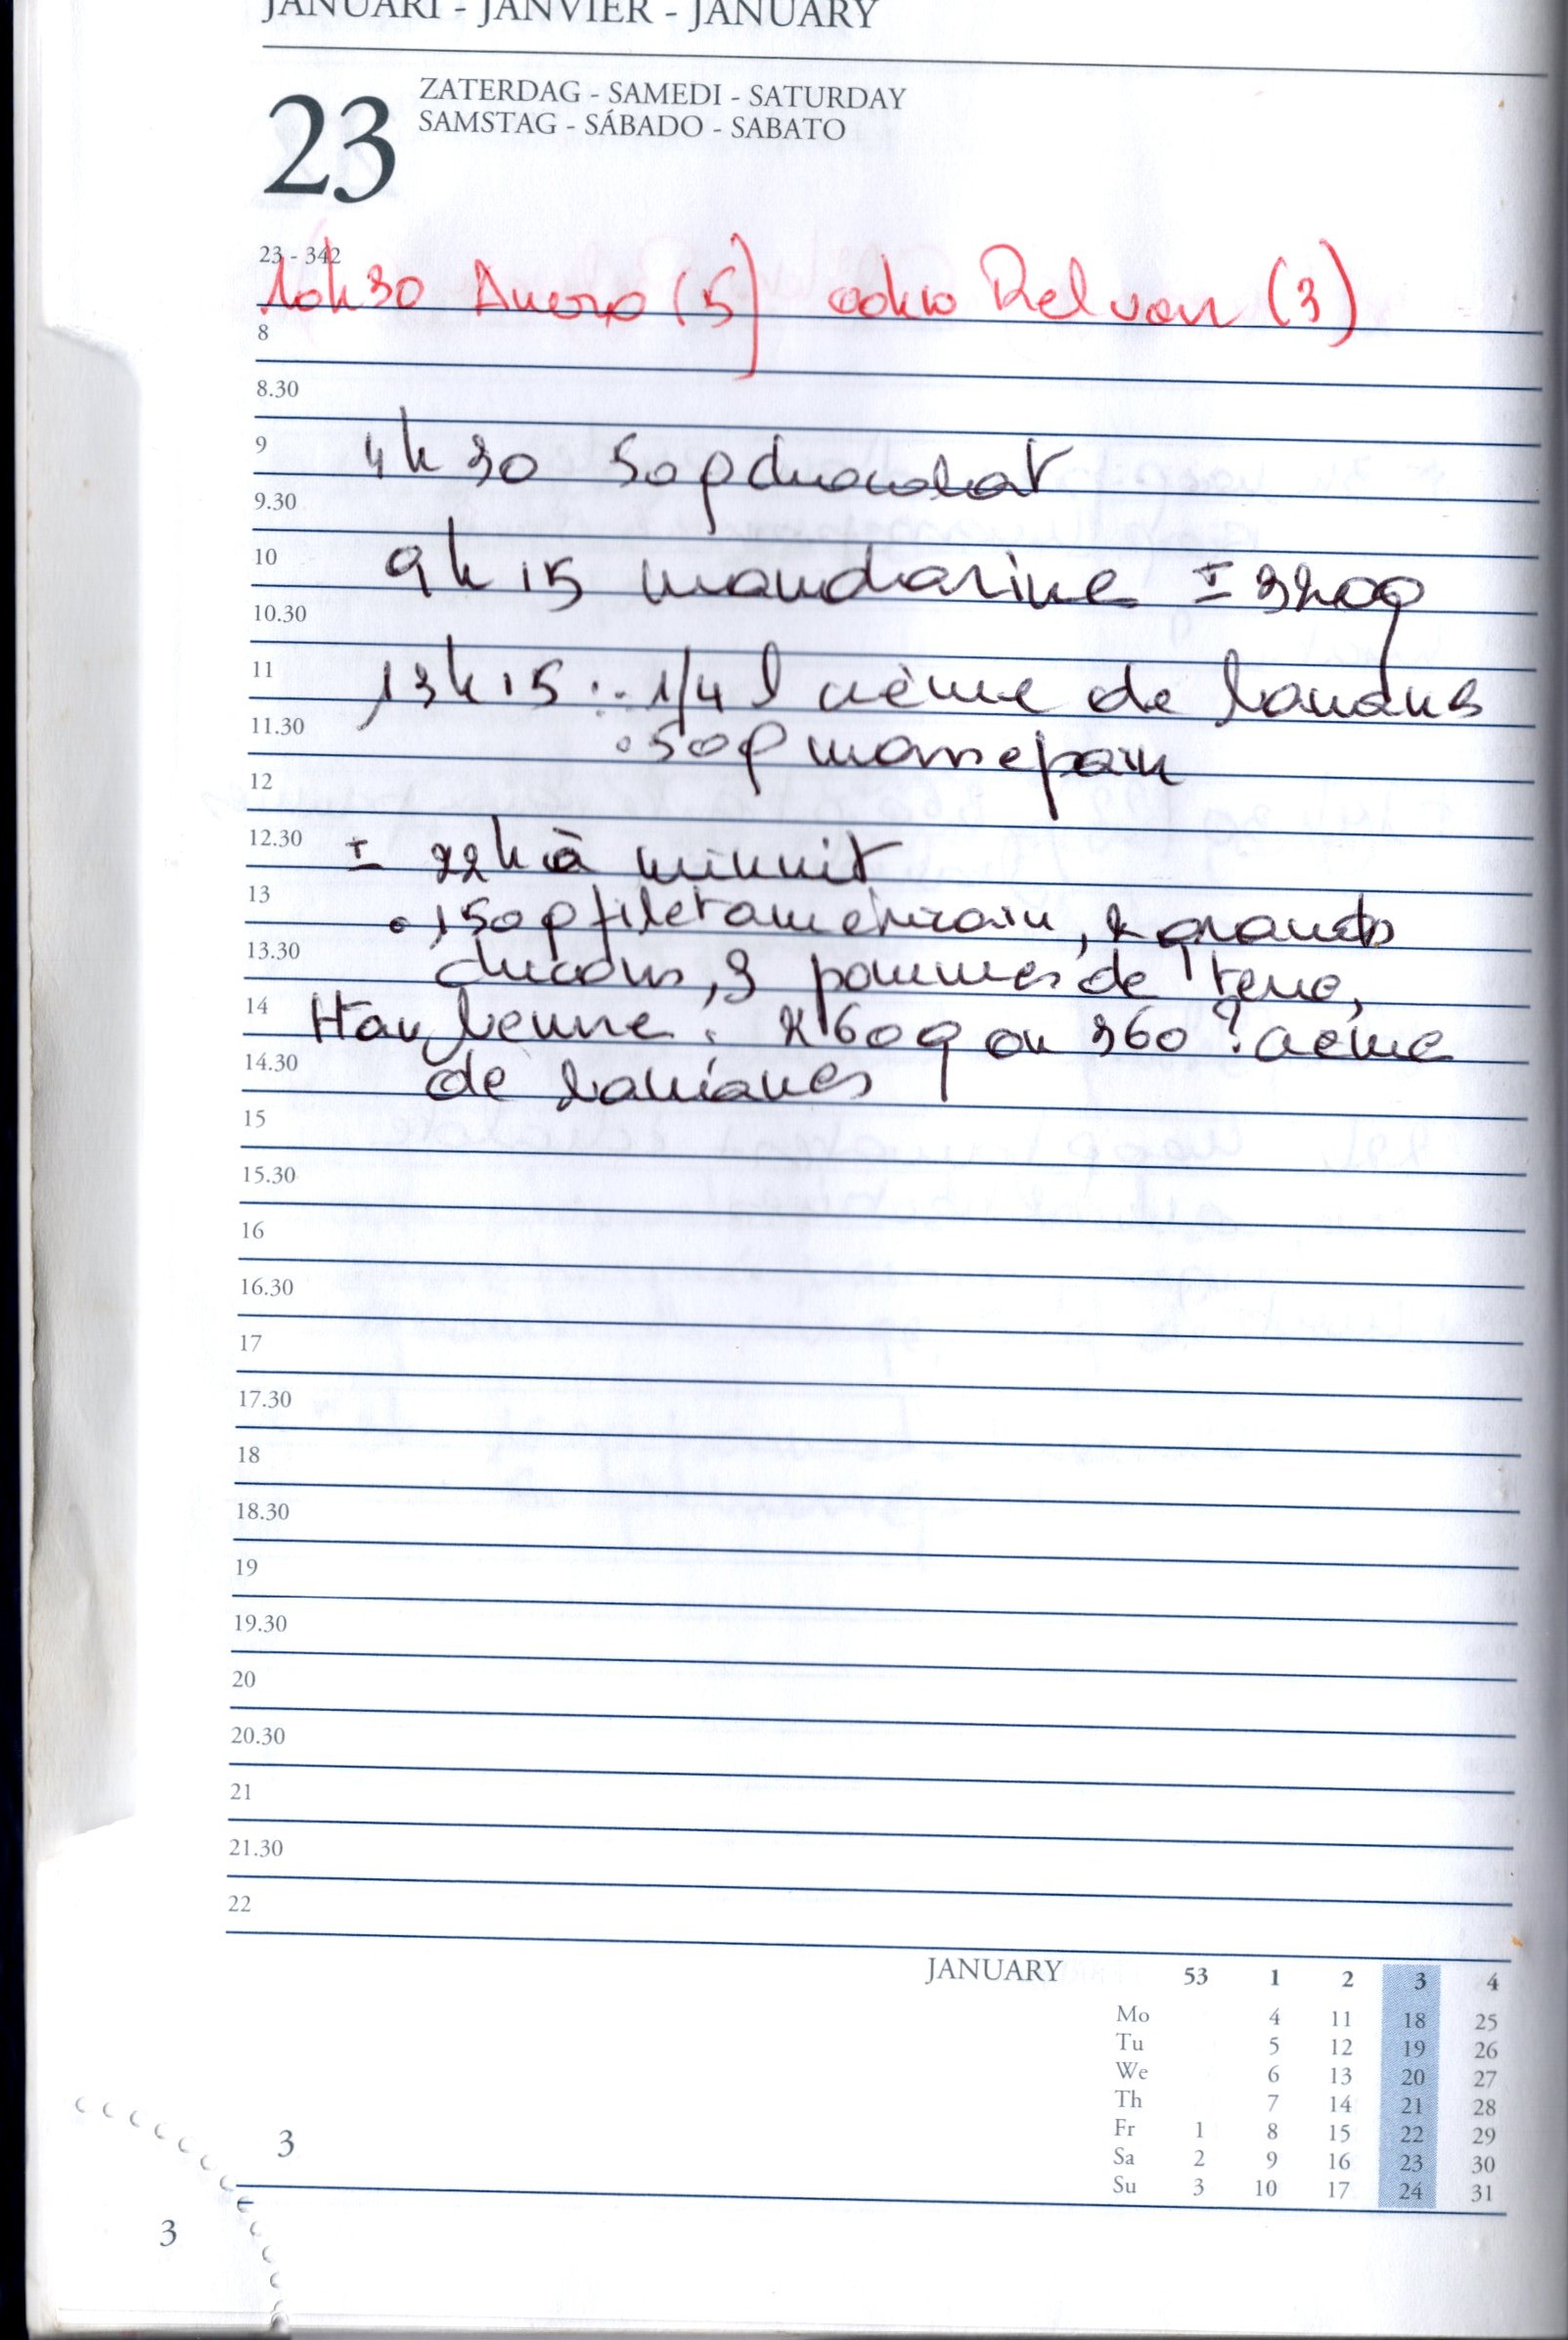 JANUARI - JANVIER - JANUARY
23
ZATERDAG - SAMEDI - SATURDAY
SAMSTAG - SÁBADO - SABATO
23 - 342
10h30 (5) Relvan (3)
8
8.30
9 4h30 50g chocolat
9.30
10 9h15 mandarine ± 320g
10.30
11 13h15 : . 1/4 l crème de
11.30 . 50g massepain
12
12.30 ± 22h à minuit
13 . 150g filet américain, 2 grands
13.30 chicons, 3 pommes de terre,
14 : 260g ou 360 ? crème
14.30 de
15
15.30
16
16.30
17
17.30
18
18.30
19
19.30
20
20.30
21
21.30
22
JANUARY 53 1 2 3 4
Mo 4 11 18 25
Tu 5 12 19 26
We 6 13 20 27
Th 7 14 21 28
Fr 1 8 15 22 29
Sa 2 9 16 23 30
Su 3 10 17 24 31
3
3